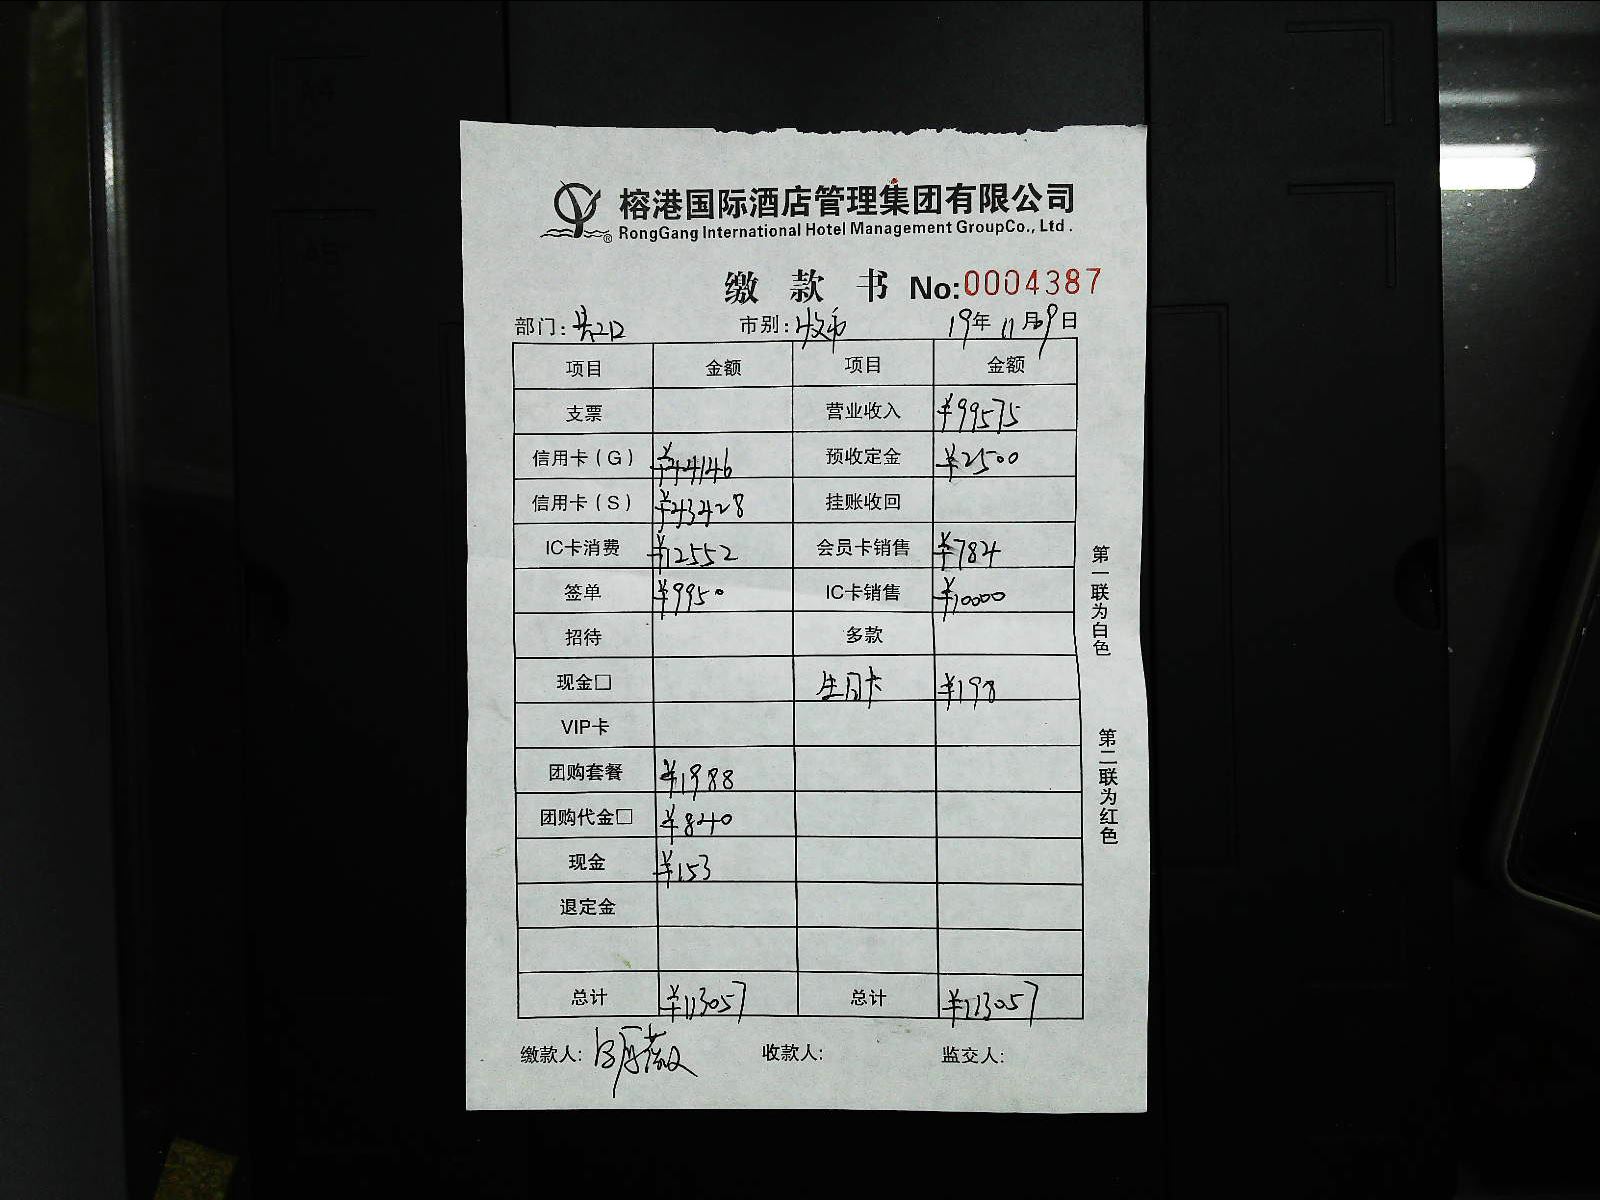 榕港国际酒店管理集团有限公司
® RongGang International Hotel Management GroupCo., Ltd .
缴 款 书 No:0004387
部门: 市别: 收市 19年 11月 9日
项目 金额 项目 金额
支票 营业收入 ¥99575
信用卡(G) ¥44146 预收定金 ¥2500
信用卡(S) ¥43428 挂账收回
IC卡消费 ¥12552 会员卡销售 ¥784
签单 ¥9950 IC卡销售 ¥10000
招待 多款
现金□ 生日卡 ¥198
VIP卡
团购套餐 ¥1988
团购代金□ ¥840
现金 ¥153
退定金
总计 ¥113057 总计 ¥113057
缴款人: 收款人: 监交人:
第一联为白色
第二联为红色
A4
A5